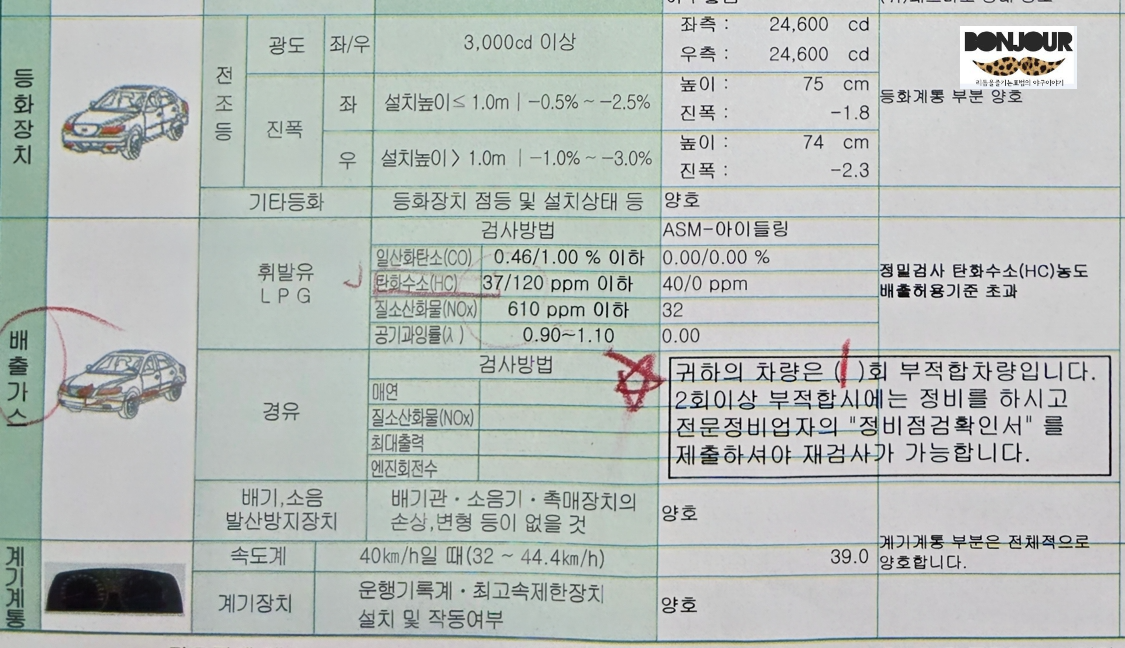 BONJOUR
등화장치
전조등
광도
좌/우
3,000cd 이상
좌측 : 24,600 cd
우측 : 24,600 cd
진폭
좌
설치높이≤ 1.0m | -0.5% ~ -2.5%
높이 : 75 cm
진폭 : -1.8
등화계통 부분 양호
우
설치높이 > 1.0m | -1.0% ~ -3.0%
높이 : 74 cm
진폭 : -2.3
기타등화
등화장치 점등 및 설치상태 등
양호
배출가스
휘발유
LPG
검사방법
ASM-아이들링
일산화탄소(CO) 0.46/1.00 % 이하 0.00/0.00 %
탄화수소(HC) 37/120 ppm 이하 40/0 ppm
질소산화물(NOx) 610 ppm 이하 32
공기과잉률(λ) 0.90~1.10 0.00
정밀검사 탄화수소(HC)농도
배출허용기준 초과
경유
검사방법
매연
질소산화물(NOx)
최대출력
엔진회전수
귀하의 차량은 (1)회 부적합차량입니다.
2회이상 부적합시에는 정비를 하시고
전문정비업자의 "정비점검확인서" 를
제출하셔야 재검사가 가능합니다.
배기,소음
발산방지장치
배기관·소음기·촉매장치의
손상,변형 등이 없을 것
양호
계기계통
속도계
40km/h일 때(32 ~ 44.4km/h)
39.0
계기계통 부분은 전체적으로
양호합니다.
계기장치
운행기록계·최고속제한장치
설치 및 작동여부
양호